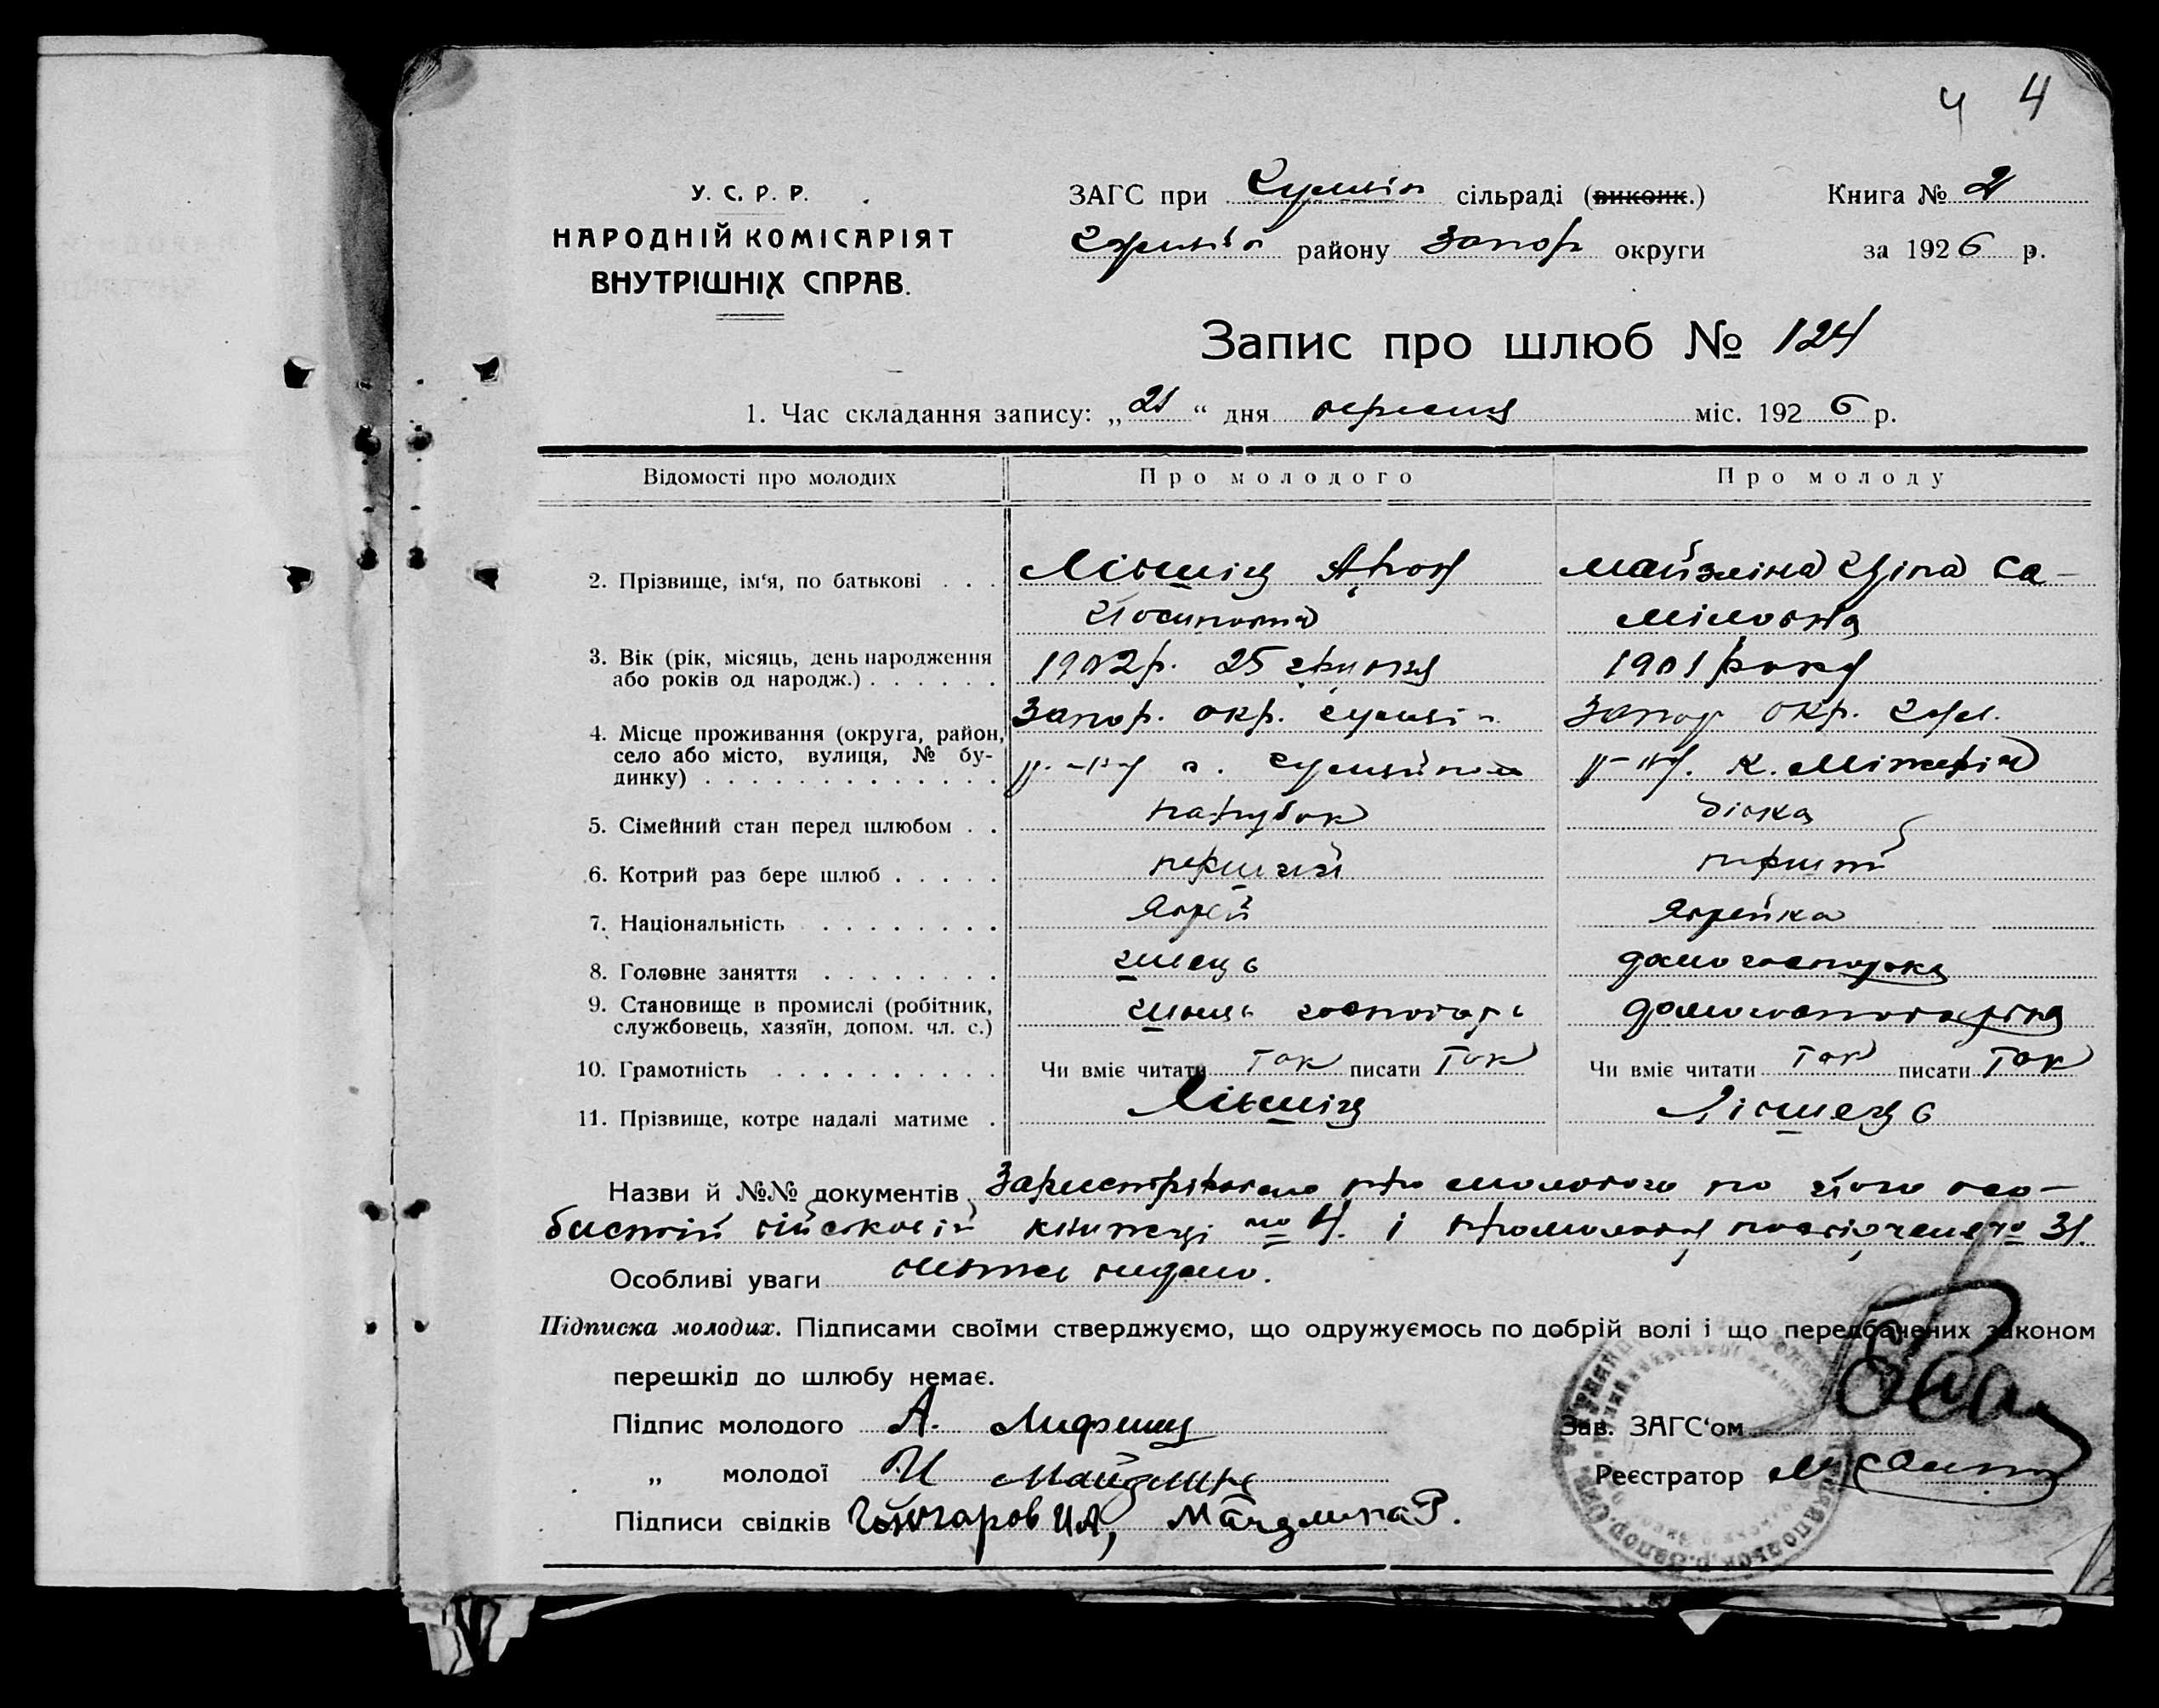 4 4
У. С. Р. Р.
НАРОДНІЙ КОМІСАРІЯТ
ВНУТРІШНІХ СПРАВ.
ЗАГС при сільраді (виконк.)
району Запор округи
Книга № 2
за 1926 р.
Запис про шлюб № 124
1. Час складання запису: „21“ дня вересня міс. 1926 р.
Відомості про молодих Про молодого Про молоду
2. Прізвище, ім‘я, по батькові . . . Лівшіц Арон Майзліна Са-
Йосипович міловна
3. Вік (рік, місяць, день народження
або років од народж.) . . . . . . 1902р. 25 1901 року
4. Місце проживання (округа, район,
село або місто, вулиця, № бу-
динку) . . . . . . . . . . . . . Запор. окр. Запор окр.
р-ну р-ну. к.
5. Сімейний стан перед шлюбом . . парубок дівка
6. Котрий раз бере шлюб . . . . . перший перший
7. Національність . . . . . . . . Яврей Яврейка
8. Головне заняття . . . . . . . . швець домогосподарка
9. Становище в промислі (робітник,
службовець, хазяїн, допом. чл. с.) швець господарь
10. Грамотність . . . . . . . . . . Чи вміє читати так писати так Чи вміє читати так писати так
11. Прізвище, котре надалі матиме . Лівшіц Лівшець
Назви й №№ документів Зареєстровано про молодого по його осо-
бистій військовій книжці № 4. і про молоду посвідчення № 31.
Особливі уваги видано.
Підписка молодих. Підписами своїми стверджуємо, що одружуємось по добрій волі і що передбачених законом
перешкід до шлюбу немає.
Підпис молодого А. Лифшиц
„ молодої И Майзлина
Підписи свідків Гончаров И.А, Майзлина Р.
Зав. ЗАГС‘ом
Реєстратор